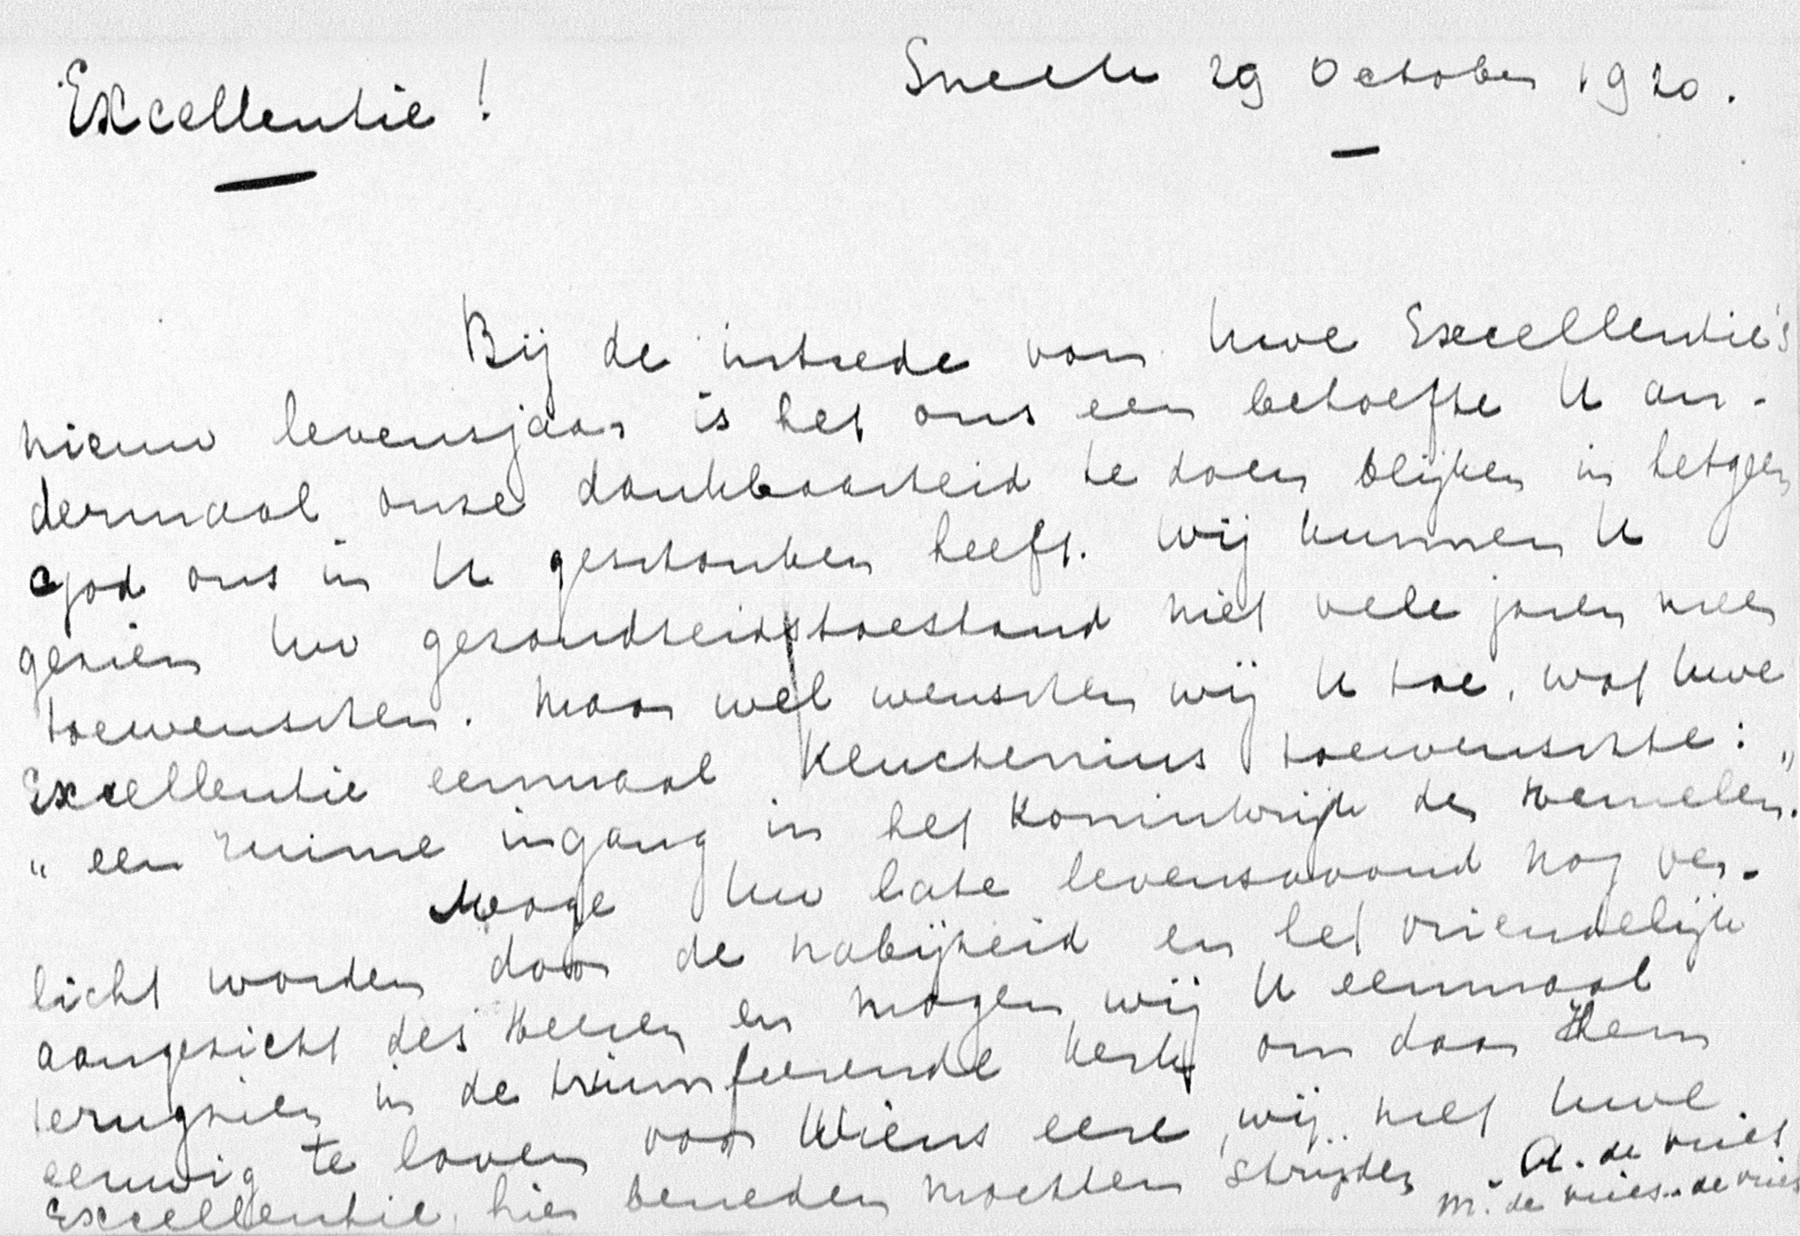 Sneek 29 October 1920.
Excellentie!
Bij de intrede van Uwe Excellentie's
nieuw levensjaar is het ons een behoefte U an-
dermaal onze dankbaarheid te doen blijken in hetgeen
God ons in U geschonken heeft. Wij kunnen U
gezien Uw gezondheidstoestand niet vele jaren meer
toewenschen. Maar wel wenschen wij U toe, wat Uwe
Excellentie eenmaal Keuchenius toewenschte: „
„ een ruime ingang in het Koninkrijk der Hemelen.
Moge Uw late levensavond nog ver-
licht worden door de nabijheid en het vriendelijk
aangezicht des Heeren en mogen wij U eenmaal
terugzien in de triumfeerende kerk om daar Hem
eeuwig te loven voor Wiens eere, wij met Uwe
Excellentie, hier beneden mochten strijden.
A. de Vries
M. de Vries-de Vries